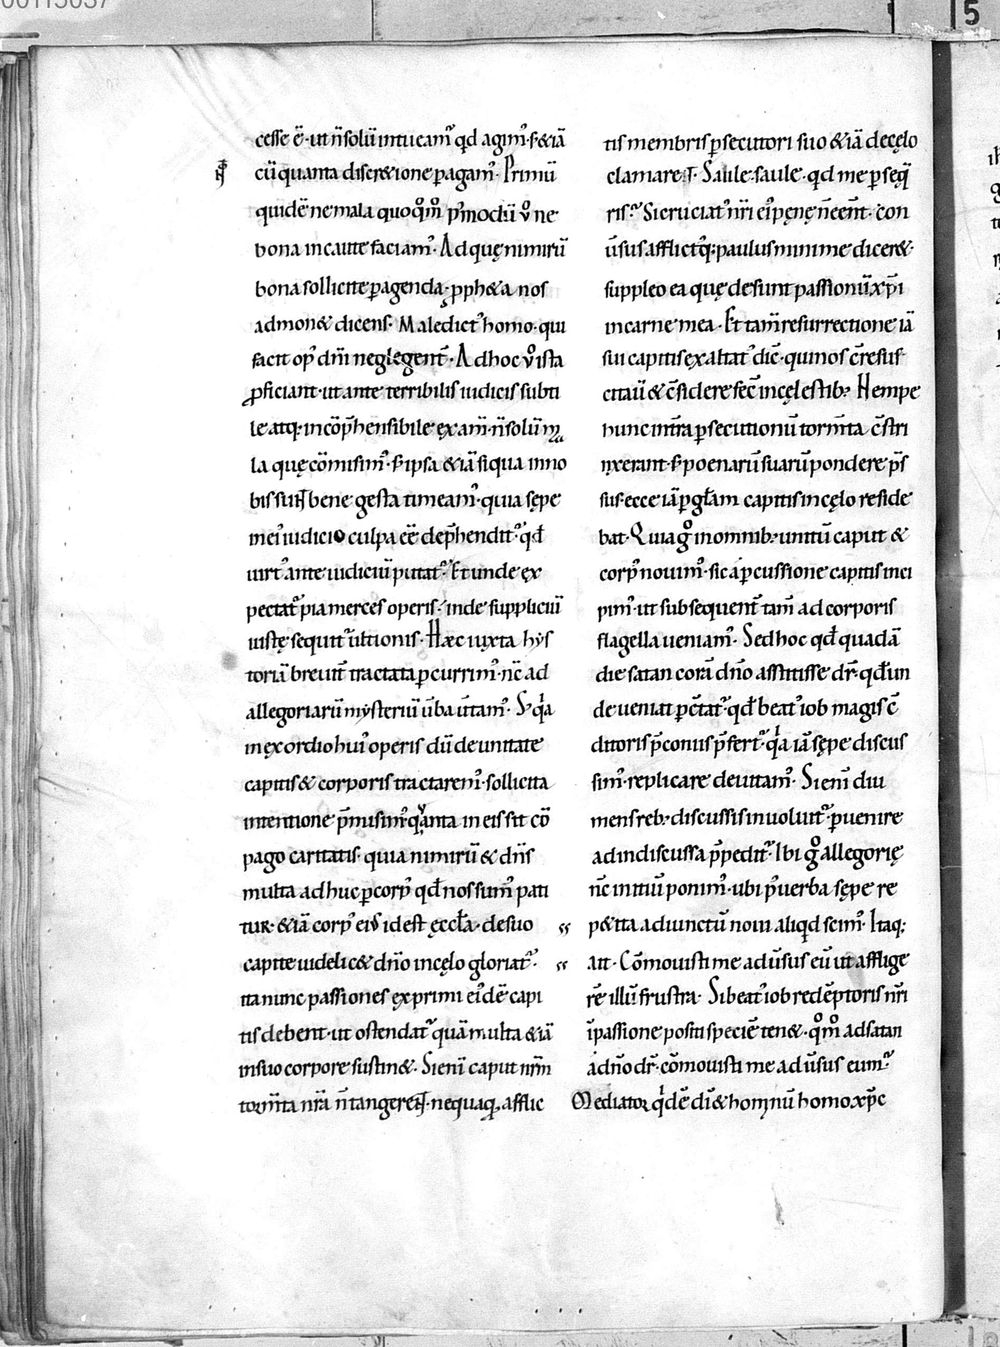 00113037
5
cesse ē· ut ñ solū intueam᷑ qd agim᷒· s; &iā
cū quanta discr&ione ꝑagam᷒· Primū
quidē ne mala quoq̊m̊ p᷒modū v̊ ne
bona incaute faciam᷒· Ad quę nimirū
bona sollicite ꝑagenda· ꝓph&a nos
admon& dicens· Maledict᷒ homo· qui
facit op᷒ dn̄i neglegent̄· Ad hoc v̊ ista
ꝓficiant· ut ante terribilis iudicis subti
le atq; incōp̄hensibile exam̄· ñ solū ma
la quę cōmisim᷒· s; ipsa &iā siqua in no
bis sunt bene gesta timeam᷒· quia sępe
in ei᷒ iudicio culpa eē dep̄hendit᷑· qd̄
uirt᷒ ante iudiciū putat᷑· Et unde ex
pectat᷑ pia merces operis· inde suppliciū
iustę sequit᷑ ultionis· Hæc iuxta hys
toriā breuit̄ tractata ꝑcurrim᷒· nc̄ ad
allegoriarū mysteriū ūba ūtam᷒· S; qa
in exordio hui᷒ operis dū de unitate
capitis & corporis tractarem᷒· sollicita
intentione p̄misim᷒· quanta in eis sit cō
pago caritatis· quia nimirū & dn̄s
multa adhuc ꝑ corp᷒ qd̄ nos sum᷒ pati
tur· &iā corp᷒ ei᷒ id est ęccła· de suo
capite uidelic& dn̄o in cęlo gloriat᷑·
ita nunc passiones exprimi ei᷒dē capi
tis debent· ut ostendat᷑ quā multa &iā
in suo corpore sustin&· Si enī caput nr̄m
torm̄ta nr̄a ñ tangerent· nequaq; afflic
tis membris ꝑsecutori suo &iā de cęlo
clamaret· Saule saule· qd me ꝑseq̄
ris? Si cruciat᷒ nr̄i ei᷒ pęnę ñ eēnt· con
ūsus afflict᷒q; paulus minime dicer&·
suppleo ea quę desunt passionū xp̄i
in carne mea· Et tam̄ resurrectione iā
sui capitis exaltat᷒ dic̄· qui nos c̄resus
citauī & c̄sidere fec̄ in cęlestib;· Nempe
hunc in tr̄a ꝑsecutionū torm̄ta c̄stri
nxerant· s; poenarū suarū pondere p̄s
sus· ecce iā ꝑ gl̄am capitis in cęlo reside
bat· Quia g̊ in omnib; unitū caput &
corp᷒ nouim᷒· sic a ꝑcussione capitis inci
pim᷒· ut subsequent̄ tam̄ ad corporis
flagella ueniam᷒· Sed hoc qd̄ quadā
die satan corā dn̄o astitisse dr̄· qd̄ un
de ueniat ꝑc̄tat᷑· qd̄ beat᷒ iob magis c̄
ditoris p̄coniis p̄fert᷑· qa iā sępe discus
sim᷒· replicare deuitam᷒· Si enī diu
mens reb; discussis inuoluit᷑· ꝑuenire
ad indiscussa p̄pedit᷑· Ibi g̊ allegorię
nc̄ initiū ponim᷒· ubi p᷒ verba sępe re
p&ita adiunctū noui aliqd scim᷒· Itaq;
ait· Cōmouisti me adūsus eū ut afflige
rē illū frustra· Si beat᷒ iob redēptoris nr̄i
ī passione positi speciē ten&· q̊m̊ ad satan
a dn̄o dr̄· cōmouisti me adūsus eum?
Mediator qdē dī & hominū homo xp̄c